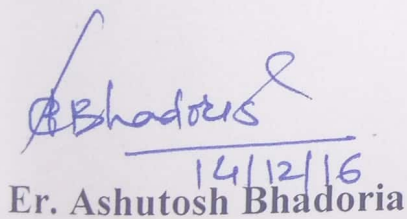 ABhadoria
14/12/16
Er. Ashutosh Bhadoria